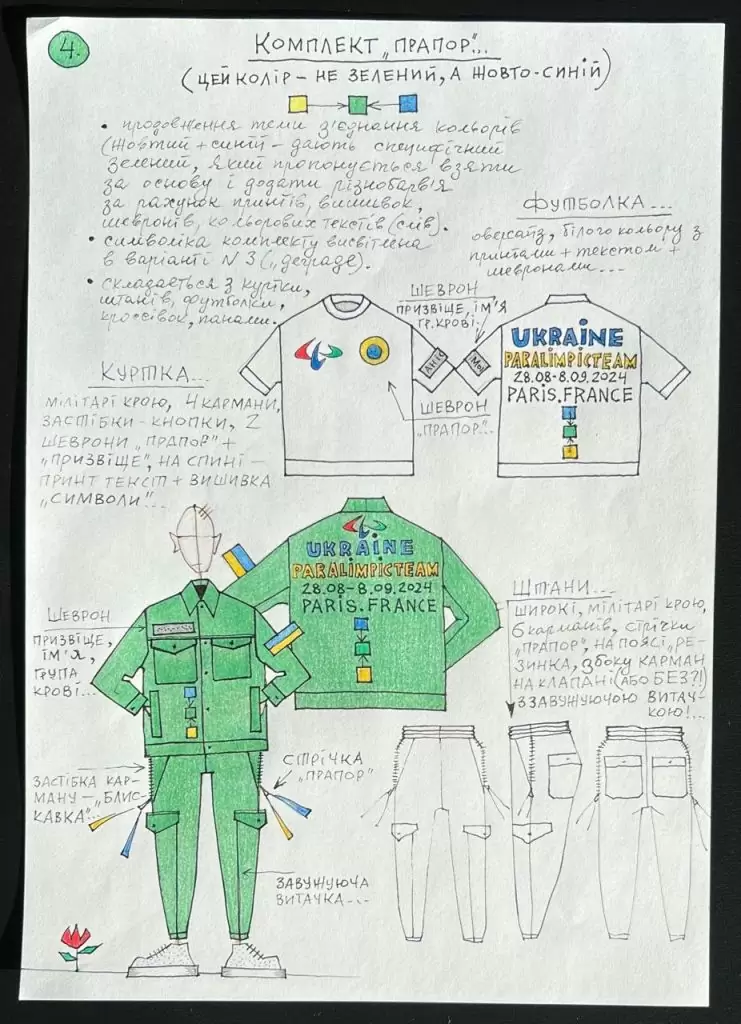 4.
КОМПЛЕКТ „ПРАПОР"...
(ЦЕЙ КОЛІР – НЕ ЗЕЛЕНИЙ, А ЖОВТО-СИНІЙ)
• продовження теми з'єднання кольорів
(жовтий + синій – дають специфічний
зелений, який пропонується взяти
за основу і додати різнобарв'я
за рахунок принтів, вишивок,
шевронів, кольорових текстів (слів).
• символіка комплекту висвітлена
в варіанті N 3 („деграде").
• складається з куртки,
штанів, футболки,
кроссівок, панами.
ФУТБОЛКА...
оверсайз, білого кольору з
принтами + текстом +
шевронами...
ШЕВРОН
ПРИЗВІЩЕ, ІМ'Я
ГР. КРОВІ.
UKRAINE
PARALIMPICTEAM
28.08-8.09.2024
PARIS.FRANCE
ШЕВРОН
„ПРАПОР"...
КУРТКА...
МІЛІТАРІ КРОЮ, 4 КАРМАНИ,
ЗАСТІБКИ - КНОПКИ, 2
ШЕВРОНИ „ПРАПОР" +
„ПРИЗВІЩЕ", НА СПИНІ –
ПРИНТ ТЕКСТ + ВИШИВКА
„СИМВОЛИ"...
UKRAINE
PARALIMPICTEAM
28.08-8.09.2024
PARIS.FRANCE
ШЕВРОН
ПРИЗВІЩЕ,
ІМ'Я,
ГРУПА
КРОВІ...
ШТАНИ...
ШИРОКІ, МІЛІТАРІ КРОЮ,
6 карманів, СТРІЧКИ
„ПРАПОР", НА ПОЯСІ „РЕ-
ЗИНКА, збоку КАРМАН
НА КЛАПАНІ (АБО БЕЗ?!)
З ЗАВУЖУЮЧОЮ ВИТАЧ-
КОЮ!...
ЗАСТІБКА КАР-
МАНУ – „БЛИС-
КАВКА"...
СТРІЧКА
„ПРАПОР"
ЗАВУЖУЮЧА
ВИТАЧКА...